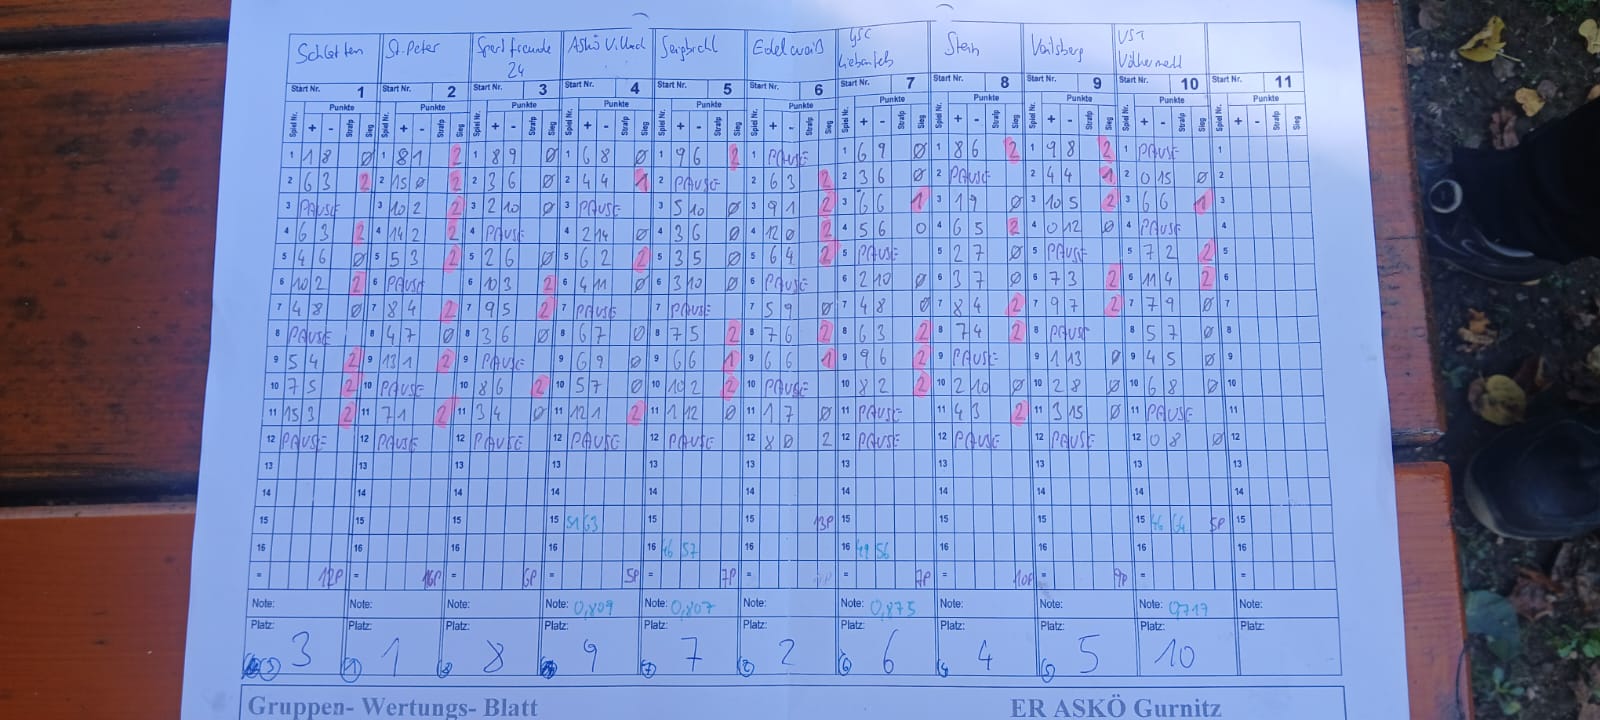 Schlatten St. Peter Sportfreunde Askö Villach Edelweiß GSC Stein VST
24
Start Nr. 1 Start Nr. 2 Start Nr. 3 Start Nr. 4 Start Nr. 5 Start Nr. 6 Start Nr. 7 Start Nr. 8 Start Nr. 9 Start Nr. 10 Start Nr. 11
Punkte Punkte Punkte Punkte Punkte Punkte Punkte Punkte Punkte Punkte Punkte
Spiel Nr. + - Strafp Sieg Spiel Nr. + - Strafp Sieg Spiel Nr. + - Strafp Sieg Spiel Nr. + - Strafp Sieg Spiel Nr. + - Strafp Sieg Spiel Nr. + - Strafp Sieg Spiel Nr. + - Strafp Sieg Spiel Nr. + - Strafp Sieg Spiel Nr. + - Strafp Sieg Spiel Nr. + - Strafp Sieg Spiel Nr. + - Strafp Sieg
1 1 8 0 1 8 1 2 1 8 9 0 1 6 8 0 1 9 6 2 1 PAUSE 1 6 9 0 1 8 6 2 1 9 8 2 1 PAUSE 1
2 6 3 2 2 15 0 2 2 3 6 0 2 4 4 1 2 PAUSE 2 6 3 2 2 3 6 0 2 PAUSE 2 4 4 1 2 0 15 0 2
3 PAUSE 3 10 2 2 3 2 10 0 3 PAUSE 3 5 10 0 3 9 1 2 3 6 6 1 3 1 9 0 3 10 5 2 3 6 6 1 3
4 6 3 2 4 14 2 2 4 PAUSE 4 2 14 0 4 3 6 0 4 12 0 2 4 5 6 0 4 6 5 2 4 0 12 0 4 PAUSE 4
5 4 6 0 5 5 3 2 5 2 6 0 5 6 2 2 5 3 5 0 5 6 4 2 5 PAUSE 5 2 7 0 5 PAUSE 5 7 2 2 5
6 10 2 2 6 PAUSE 6 10 3 2 6 4 11 0 6 3 10 0 6 PAUSE 6 2 10 0 6 3 7 0 6 7 3 2 6 11 4 2 6
7 4 8 0 7 8 4 2 7 9 5 2 7 PAUSE 7 PAUSE 7 5 9 0 7 4 8 0 7 8 4 2 7 9 7 2 7 7 9 0 7
8 PAUSE 8 4 7 0 8 3 6 0 8 6 7 0 8 7 5 2 8 7 6 2 8 6 3 2 8 7 4 2 8 PAUSE 8 5 7 0 8
9 5 4 2 9 13 1 2 9 PAUSE 9 6 9 0 9 6 6 1 9 6 6 1 9 9 6 2 9 PAUSE 9 1 13 0 9 4 5 0 9
10 7 5 2 10 PAUSE 10 8 6 2 10 5 7 0 10 10 2 2 10 PAUSE 10 8 2 2 10 2 10 0 10 2 8 0 10 6 8 0 10
11 15 3 2 11 7 1 2 11 3 4 0 11 12 1 2 11 1 12 0 11 1 7 0 11 PAUSE 11 4 3 2 11 3 15 0 11 PAUSE 11
12 PAUSE 12 PAUSE 12 PAUSE 12 PAUSE 12 PAUSE 12 8 0 2 12 PAUSE 12 PAUSE 12 PAUSE 12 0 8 0 12
13 13 13 13 13 13 13 13 13 13 13
14 14 14 14 14 14 14 14 14 14 14
15 15 15 15 51 63 15 15 13P 15 15 15 15 46 64 5P 15
16 16 16 16 16 46 57 16 16 49 56 16 16 16 16
= 12P = 16P = 6P = 5P = 7P = = 7P = 10P = 9P = =
Note: Note: Note: Note: 0,809 Note: 0,807 Note: Note: 0,875 Note: Note: Note: 0,717 Note:
Platz: 3 Platz: 1 Platz: 8 Platz: 9 Platz: 7 Platz: 2 Platz: 6 Platz: 4 Platz: 5 Platz: 10 Platz:
Gruppen- Wertungs- Blatt ER ASKÖ Gurnitz